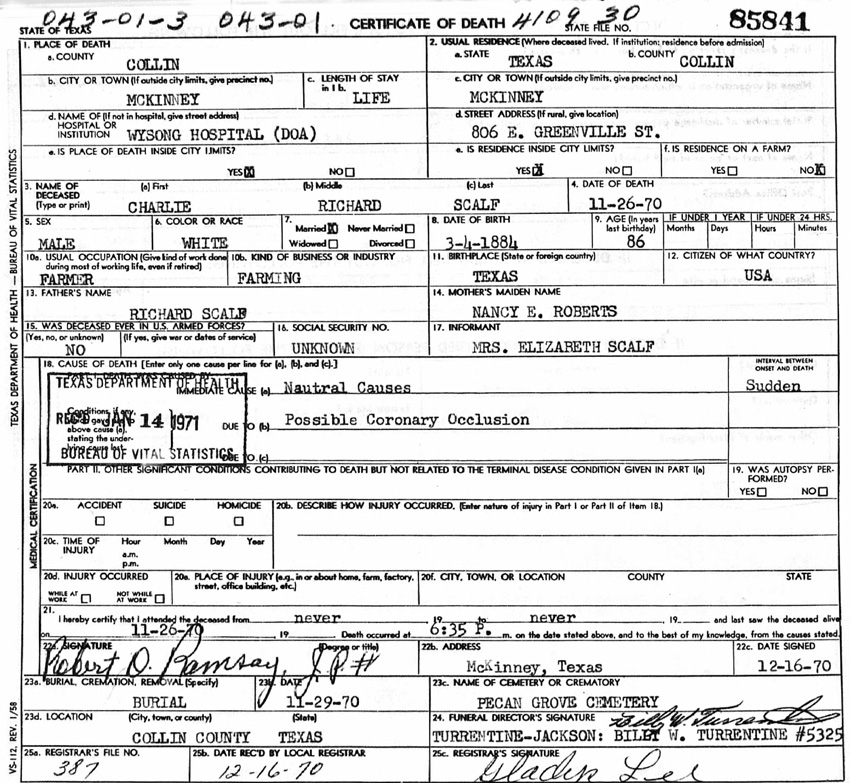 043-01-3 043-01 CERTIFICATE OF DEATH 4109 30 85841
STATE OF TEXAS STATE FILE NO.
1. PLACE OF DEATH
a. COUNTY
COLLIN
2. USUAL RESIDENCE (Where deceased lived. If institution: residence before admission)
a. STATE
TEXAS
b. COUNTY
COLLIN
b. CITY OR TOWN (If outside city limits, give precinct no.)
MCKINNEY
c. LENGTH OF STAY in 1 b.
LIFE
c. CITY OR TOWN (If outside city limits, give precinct no.)
MCKINNEY
d. NAME OF (If not in hospital, give street address)
HOSPITAL OR
INSTITUTION WYSONG HOSPITAL (DOA)
d. STREET ADDRESS (If rural, give location)
806 E. GREENVILLE ST.
e. IS PLACE OF DEATH INSIDE CITY LIMITS?
YES X NO
e. IS RESIDENCE INSIDE CITY LIMITS?
YES X NO
f. IS RESIDENCE ON A FARM?
YES NO X
3. NAME OF DECEASED (Type or print)
(a) First
CHARLIE
(b) Middle
RICHARD
(c) Last
SCALF
4. DATE OF DEATH
11-26-70
5. SEX
MALE
6. COLOR OR RACE
WHITE
7.
Married X Never Married
Widowed Divorced
8. DATE OF BIRTH
3-4-1884
9. AGE (In years last birthday)
86
IF UNDER 1 YEAR
Months Days
IF UNDER 24 HRS.
Hours Minutes
10a. USUAL OCCUPATION (Give kind of work done during most of working life, even if retired)
FARMER
10b. KIND OF BUSINESS OR INDUSTRY
FARMING
11. BIRTHPLACE (State or foreign country)
TEXAS
12. CITIZEN OF WHAT COUNTRY?
USA
13. FATHER'S NAME
RICHARD SCALF
14. MOTHER'S MAIDEN NAME
NANCY E. ROBERTS
15. WAS DECEASED EVER IN U.S. ARMED FORCES?
(Yes, no, or unknown) (If yes, give war or dates of service)
NO
16. SOCIAL SECURITY NO.
UNKNOWN
17. INFORMANT
MRS. ELIZABETH SCALF
18. CAUSE OF DEATH [Enter only one cause per line for (a), (b), and (c).]
INTERVAL BETWEEN ONSET AND DEATH
PART I. DEATH WAS CAUSED BY
IMMEDIATE CAUSE (a) Nautral Causes
Sudden
Conditions, if any,
above cause (a),
stating the under-
lying cause last.
DUE TO (b) Possible Coronary Occlusion
DUE TO (c)
TEXAS DEPARTMENT OF HEALTH
REC'D JAN 14 1971
BUREAU OF VITAL STATISTICS
PART II. OTHER SIGNIFICANT CONDITIONS CONTRIBUTING TO DEATH BUT NOT RELATED TO THE TERMINAL DISEASE CONDITION GIVEN IN PART I(a)
19. WAS AUTOPSY PERFORMED?
YES NO
20a. ACCIDENT SUICIDE HOMICIDE
20b. DESCRIBE HOW INJURY OCCURRED. (Enter nature of injury in Part I or Part II of Item 18.)
20c. TIME OF INJURY
Hour Month Day Year
a.m.
p.m.
20d. INJURY OCCURRED
WHILE AT WORK NOT WHILE AT WORK
20e. PLACE OF INJURY (e.g., in or about home, farm, factory, street, office building, etc.)
20f. CITY, TOWN, OR LOCATION COUNTY STATE
21. I hereby certify that I attended the deceased from never 19 to never 19 and last saw the deceased alive
on 11-26-70 19 Death occurred at 6:35 P. m. on the date stated above, and to the best of my knowledge, from the causes stated.
22a. SIGNATURE (Degree or title)
Robert O. Ramsay, J.P.#
22b. ADDRESS
McKinney, Texas
22c. DATE SIGNED
12-16-70
23a. BURIAL, CREMATION, REMOVAL (Specify)
BURIAL
23b. DATE
11-29-70
23c. NAME OF CEMETERY OR CREMATORY
PECAN GROVE CEMETERY
23d. LOCATION (City, town, or county) (State)
COLLIN COUNTY TEXAS
24. FUNERAL DIRECTOR'S SIGNATURE Billy W. Turrentine
TURRENTINE-JACKSON: BILLY W. TURRENTINE #5325
25a. REGISTRAR'S FILE NO.
387
25b. DATE REC'D BY LOCAL REGISTRAR
12-16-70
25c. REGISTRAR'S SIGNATURE
Gladys Lee
TEXAS DEPARTMENT OF HEALTH — BUREAU OF VITAL STATISTICS
MEDICAL CERTIFICATION
VS-112, REV. 1/58